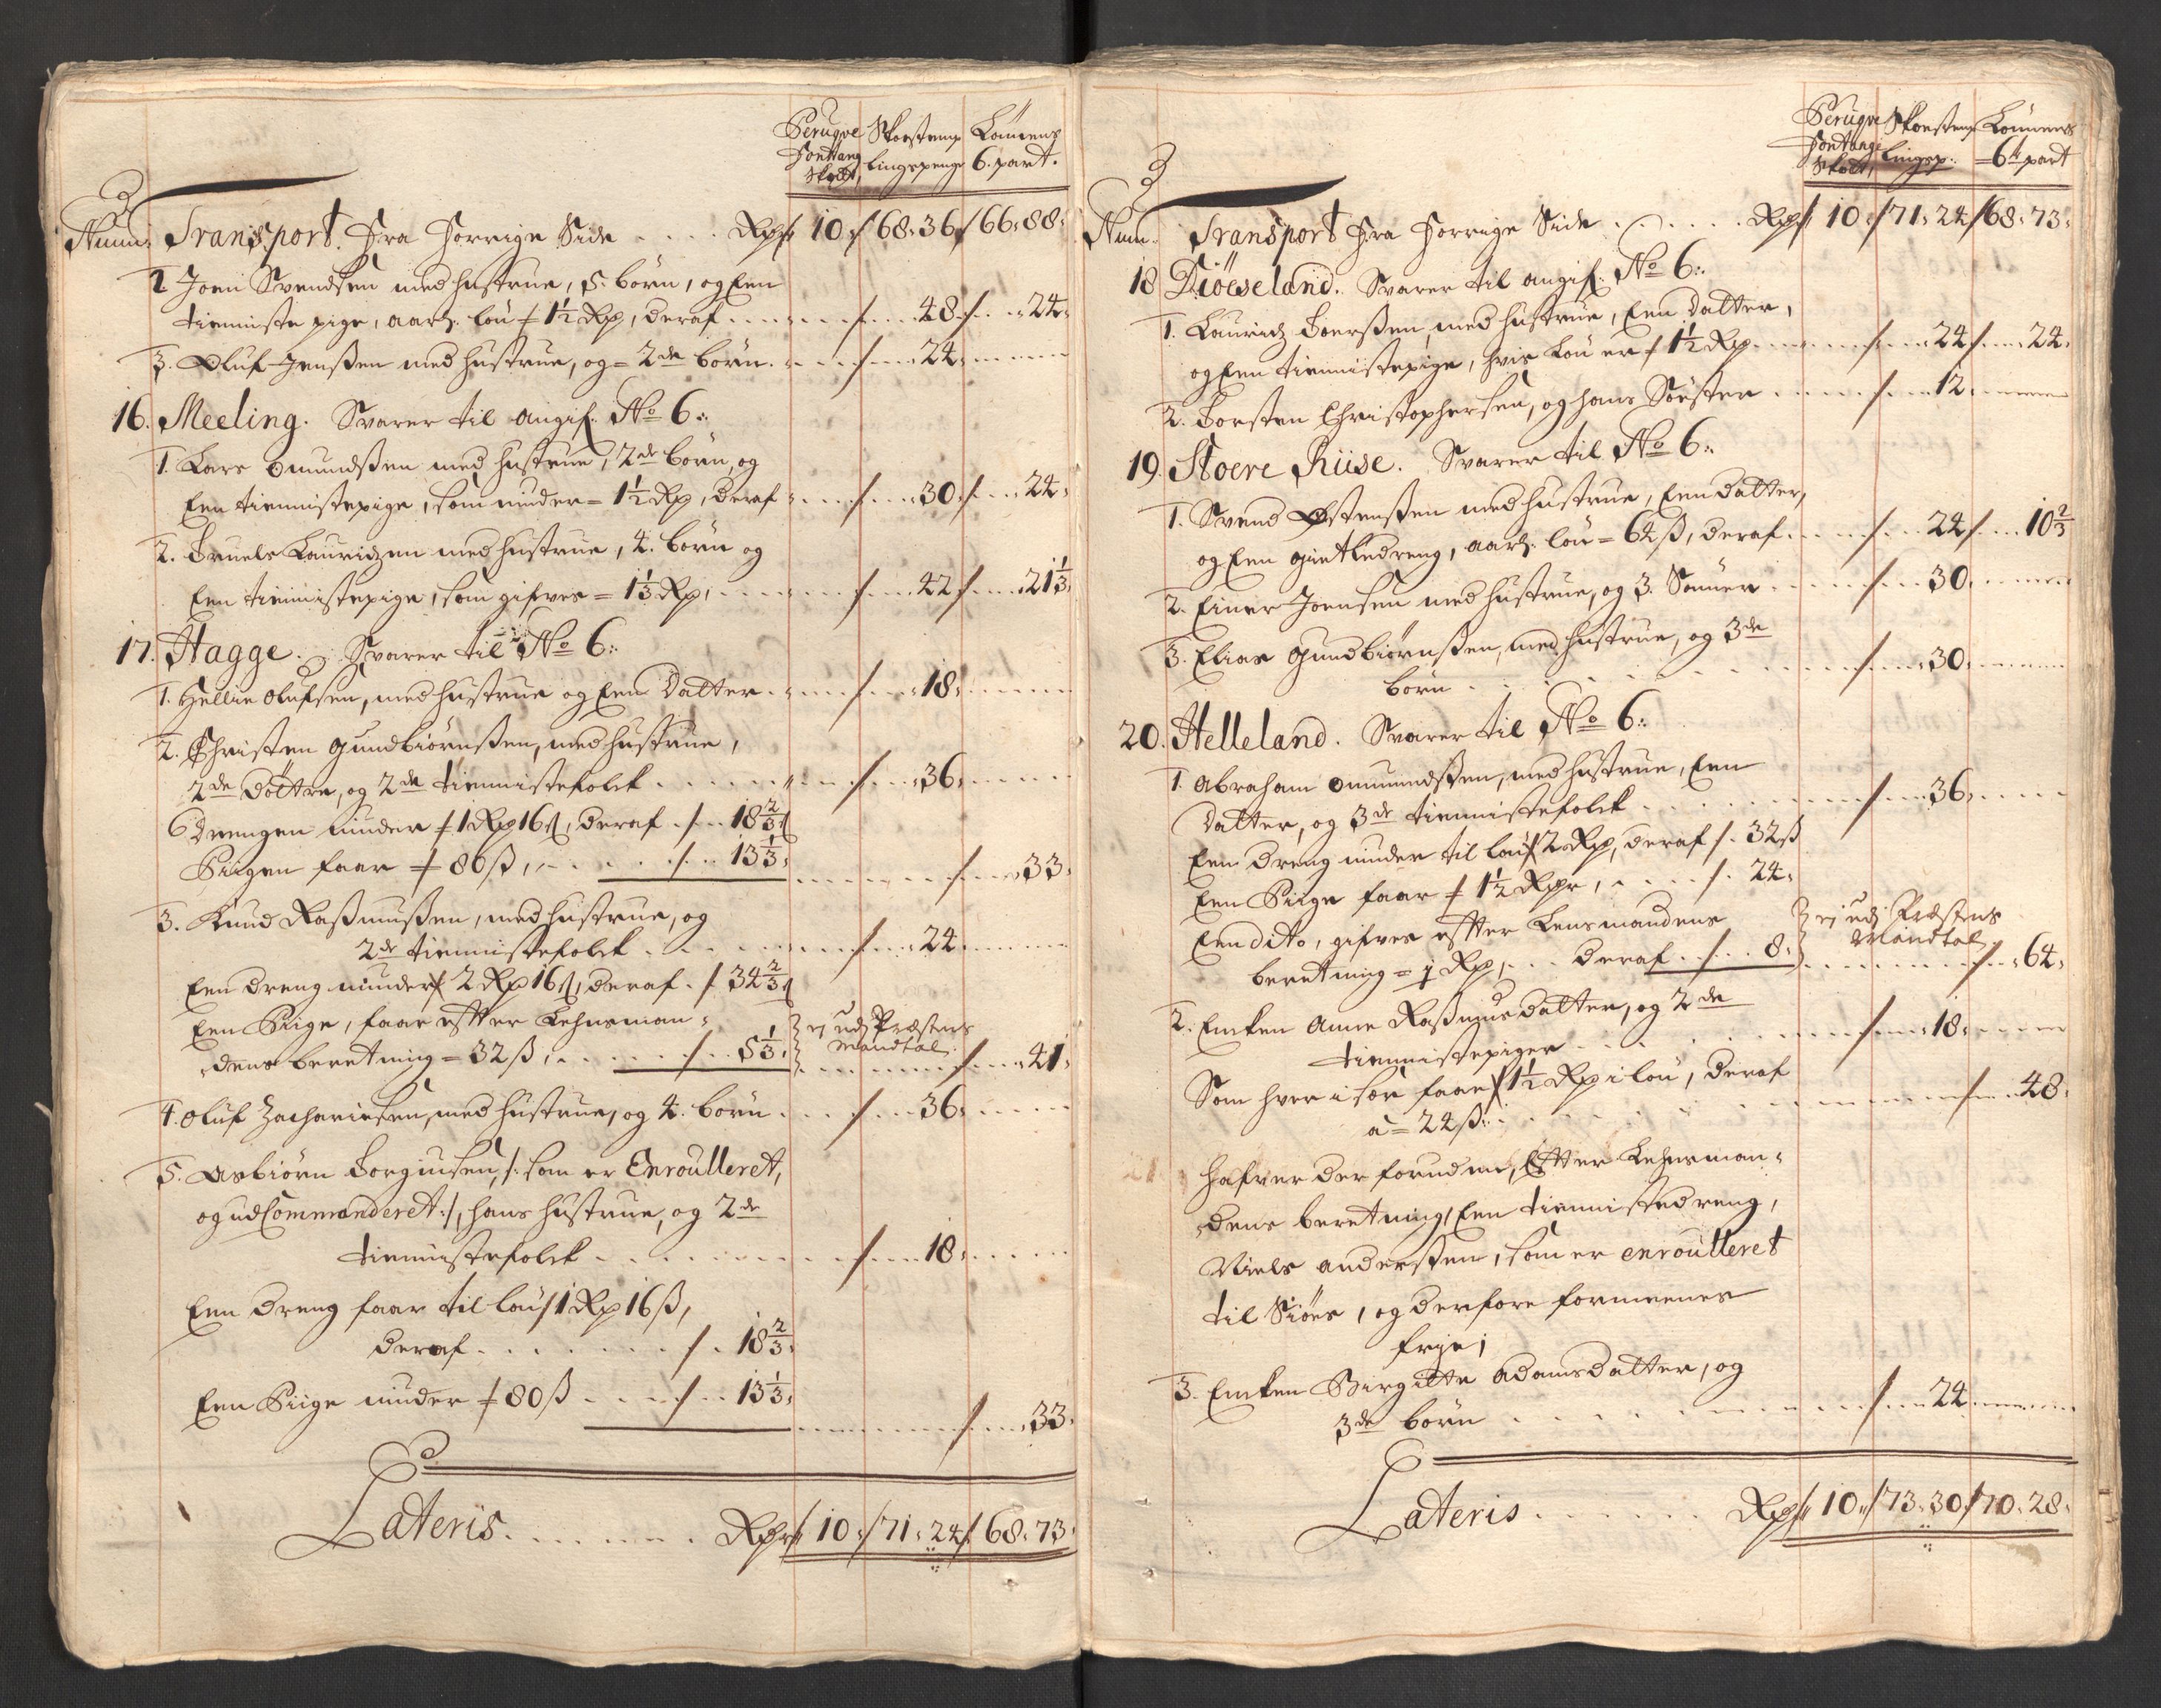 Perugve Skorsteens Lönnens
Fontang lingspenge 6. part.
Skatt,
Num: Transport. Fra Forrige Side .... Rdr 10:/68:36/66:88:
2 Joen Svendsen med hustrue, 5. börn, og Een
tienniste pige, aarl. lön / 1½ Rdr, deraf .... / ... 48 / ... 24:
3. Oluf Jenßen med hustrue, og = 2de börn. ... / ... 24:
16. Meeling. Svarer til angif: No 6:
1. Lars Omundßen med hustrue, 2de börn, og
Een tiennistepige, som nÿder = 1½ Rdr, deraf ... / ... 30: / ... 24:
2. Truels Lauridzen med hustrue, 4. börn og
Een tiennistepige, som gifves = 1⅓ Rdr, .... / ... 42 / ... 21⅓:
17. Hagge. Svarer til No 6:
1. Hellie Olufsen, med hustrue og Een Datter ... / ... 18:
2. Christen Gundbiörnßen, med hustrue,
2de Döttre, og 2de tiennistefolck ..... / ... 36:
Drengen nÿder / 1 Rdr 16 ß, deraf / .. 18⅔ ß
Piigen faar / 80 ß, ..... / .. 13⅓:
.... / .... 33:
3. Knud Raßmußen, med hustrue, og
2de tiennistefolck ..... / ... 24
Een dreng nÿder / 2 Rdr 16 ß, deraf / 34⅔ ß
Een Piige, faar efter Lehnsman-
dens beretning = 32 ß, ..... / .. 5⅓: ej udj Præstens
Mandtal
... / ... 41:
4. Oluf Zachariesen, med hustrue, og 4. börn ... / ... 36:
5. Asbiörn Torgiusen, /: som er Enroulleret,
og udCommanderet :/, hans hustrue, og 2de
tiennistefolck ..... / ... 18:
Een Dreng faar til lön / 1 Rdr 16 ß,
deraf ..... / . 18⅔:
Een Piige nÿder / 80 ß .... / .. 13⅓:
.... / ... 33:
Lateris ...... Rdr 10:/71:24/68:73:
Perugve Skorsteens Lönnens
Fontange lingsp: =6te part
Skatt,
Num. Transport Fra Forrige Side ..... Rdr 10:/71:24/68:73:
18 Diöeseland. Svarer til angif: No 6:
1. Lauridz Toerßen, med hustrue, Een Datter,
og Een tiennistepige, hvis Lön er / 1½ Rdr .... / ... 24 / ... 24:
2. Torsten Christophersen, og hans Söster ... / ... 12
19. Stoere Riise. Svarer til No 6:
1. Svend Østenßen med hustrue, Een datter,
og Een giætledreng, aarl. lön = 64 ß, deraf ... / ... 24 / ... 10⅔
2. Einer Joensen med hustrue, og 3. Sønner ... / ... 30:
3. Elias Gundbiörnßen, med hustrue, og 3de
börn ..... / ... 30:
20. Helleland. Svarer til No 6:
1. Abraham Omundßen, med hustrue, Een
Datter, og 3de tiennistefolck ..... / ... 36:
Een dreng nÿder til lön / 2 Rdr, deraf / . 32 ß
Een Piige faar / 1½ Rdr, .... / . 24:
Een dito, gifves efter Lensmandens ej udj Præstens
Mandtal
beretning = 1 Rdr, .. deraf ... / .. 8: ..... / ... 64:
2. Encken Anne Raßmusdatter, og 2de
tiennistepiger ..... / ... 18:
Som hver i sær faar / 1½ Rdr i lön, deraf
a = 24 ß: ..... / ... 48:
Hafver der foruden, Efter Lehnsman-
dens beretning, Een tiennistedreng,
Niels Anderßen, som er enroulleret
til Siöes, og derfore formeenes
frÿe;
3. Encken Birgitte Adamsdatter, og
3de börn ..... / ... 24
Lateris ...... Rdr 10:/73:30/70:28: